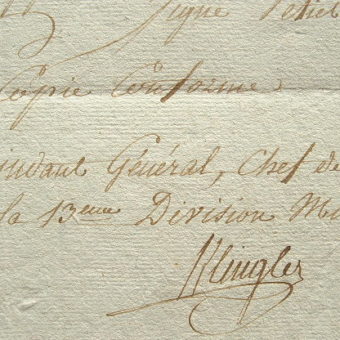 Signé
Copie Conforme
judant Général, Chef de
la 13eme Division Mi
Klingler